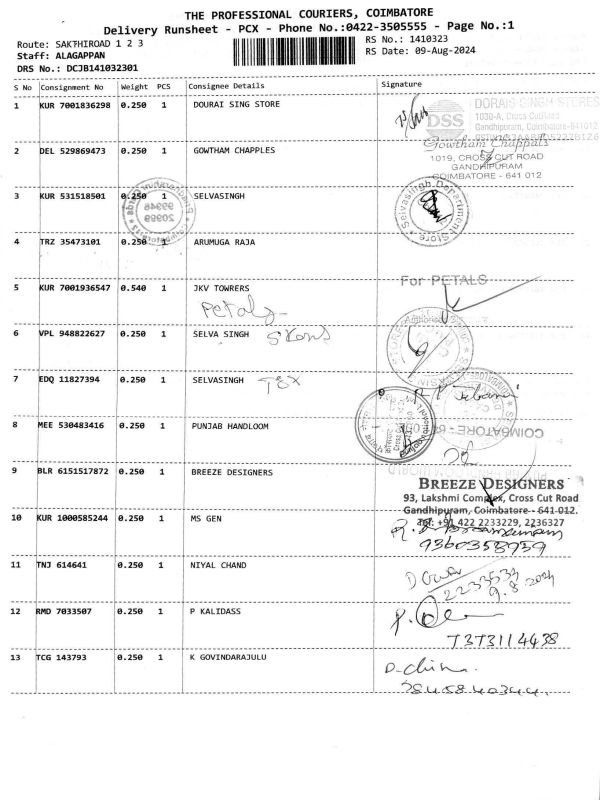 THE PROFESSIONAL COURIERS, COIMBATORE
Delivery Runsheet - PCX - Phone No.:0422-3505555 - Page No.:1
Route: SAKTHIROAD 1 2 3
RS No.: 1410323
Staff: ALAGAPPAN
RS Date: 09-Aug-2024
DRS No.: DCJB141032301
S No Consignment No Weight PCS Consignee Details Signature
1 KUR 7001836298 0.250 1 DOURAI SING STORE
DSS
DORAIS SINGH STORES
1030-A, Cross CutRoad
Gandhipuram, Coimbatore-641012
2 DEL 529869473 0.250 1 GOWTHAM CHAPPLES
Gowtham Chappals
1019, CROSS CUT ROAD
GANDHIPURAM
COIMBATORE - 641 012
3 KUR 531518501 0.250 1 SELVASINGH
Selvasingh Department Store
4 TRZ 35473101 0.250 1 ARUMUGA RAJA
5 KUR 7001936547 0.540 1 JKV TOWRERS
Petals
For PETALS
6 VPL 948822627 0.250 1 SELVA SINGH
7 EDQ 11827394 0.250 1 SELVASINGH
8 MEE 530483416 0.250 1 PUNJAB HANDLOOM
COIMBATORE
9 BLR 6151517872 0.250 1 BREEZE DESIGNERS
BREEZE DESIGNERS
93, Lakshmi Complex, Cross Cut Road
Gandhipuram, Coimbatore - 641 012.
Tel: +91 422 2233229, 2236327
10 KUR 1000585244 0.250 1 MS GEN
9360358959
11 TNJ 614641 0.250 1 NIYAL CHAND
2233533
9.8.2024
12 RMD 7033507 0.250 1 P KALIDASS
7373114438
13 TCG 143793 0.250 1 K GOVINDARAJULU